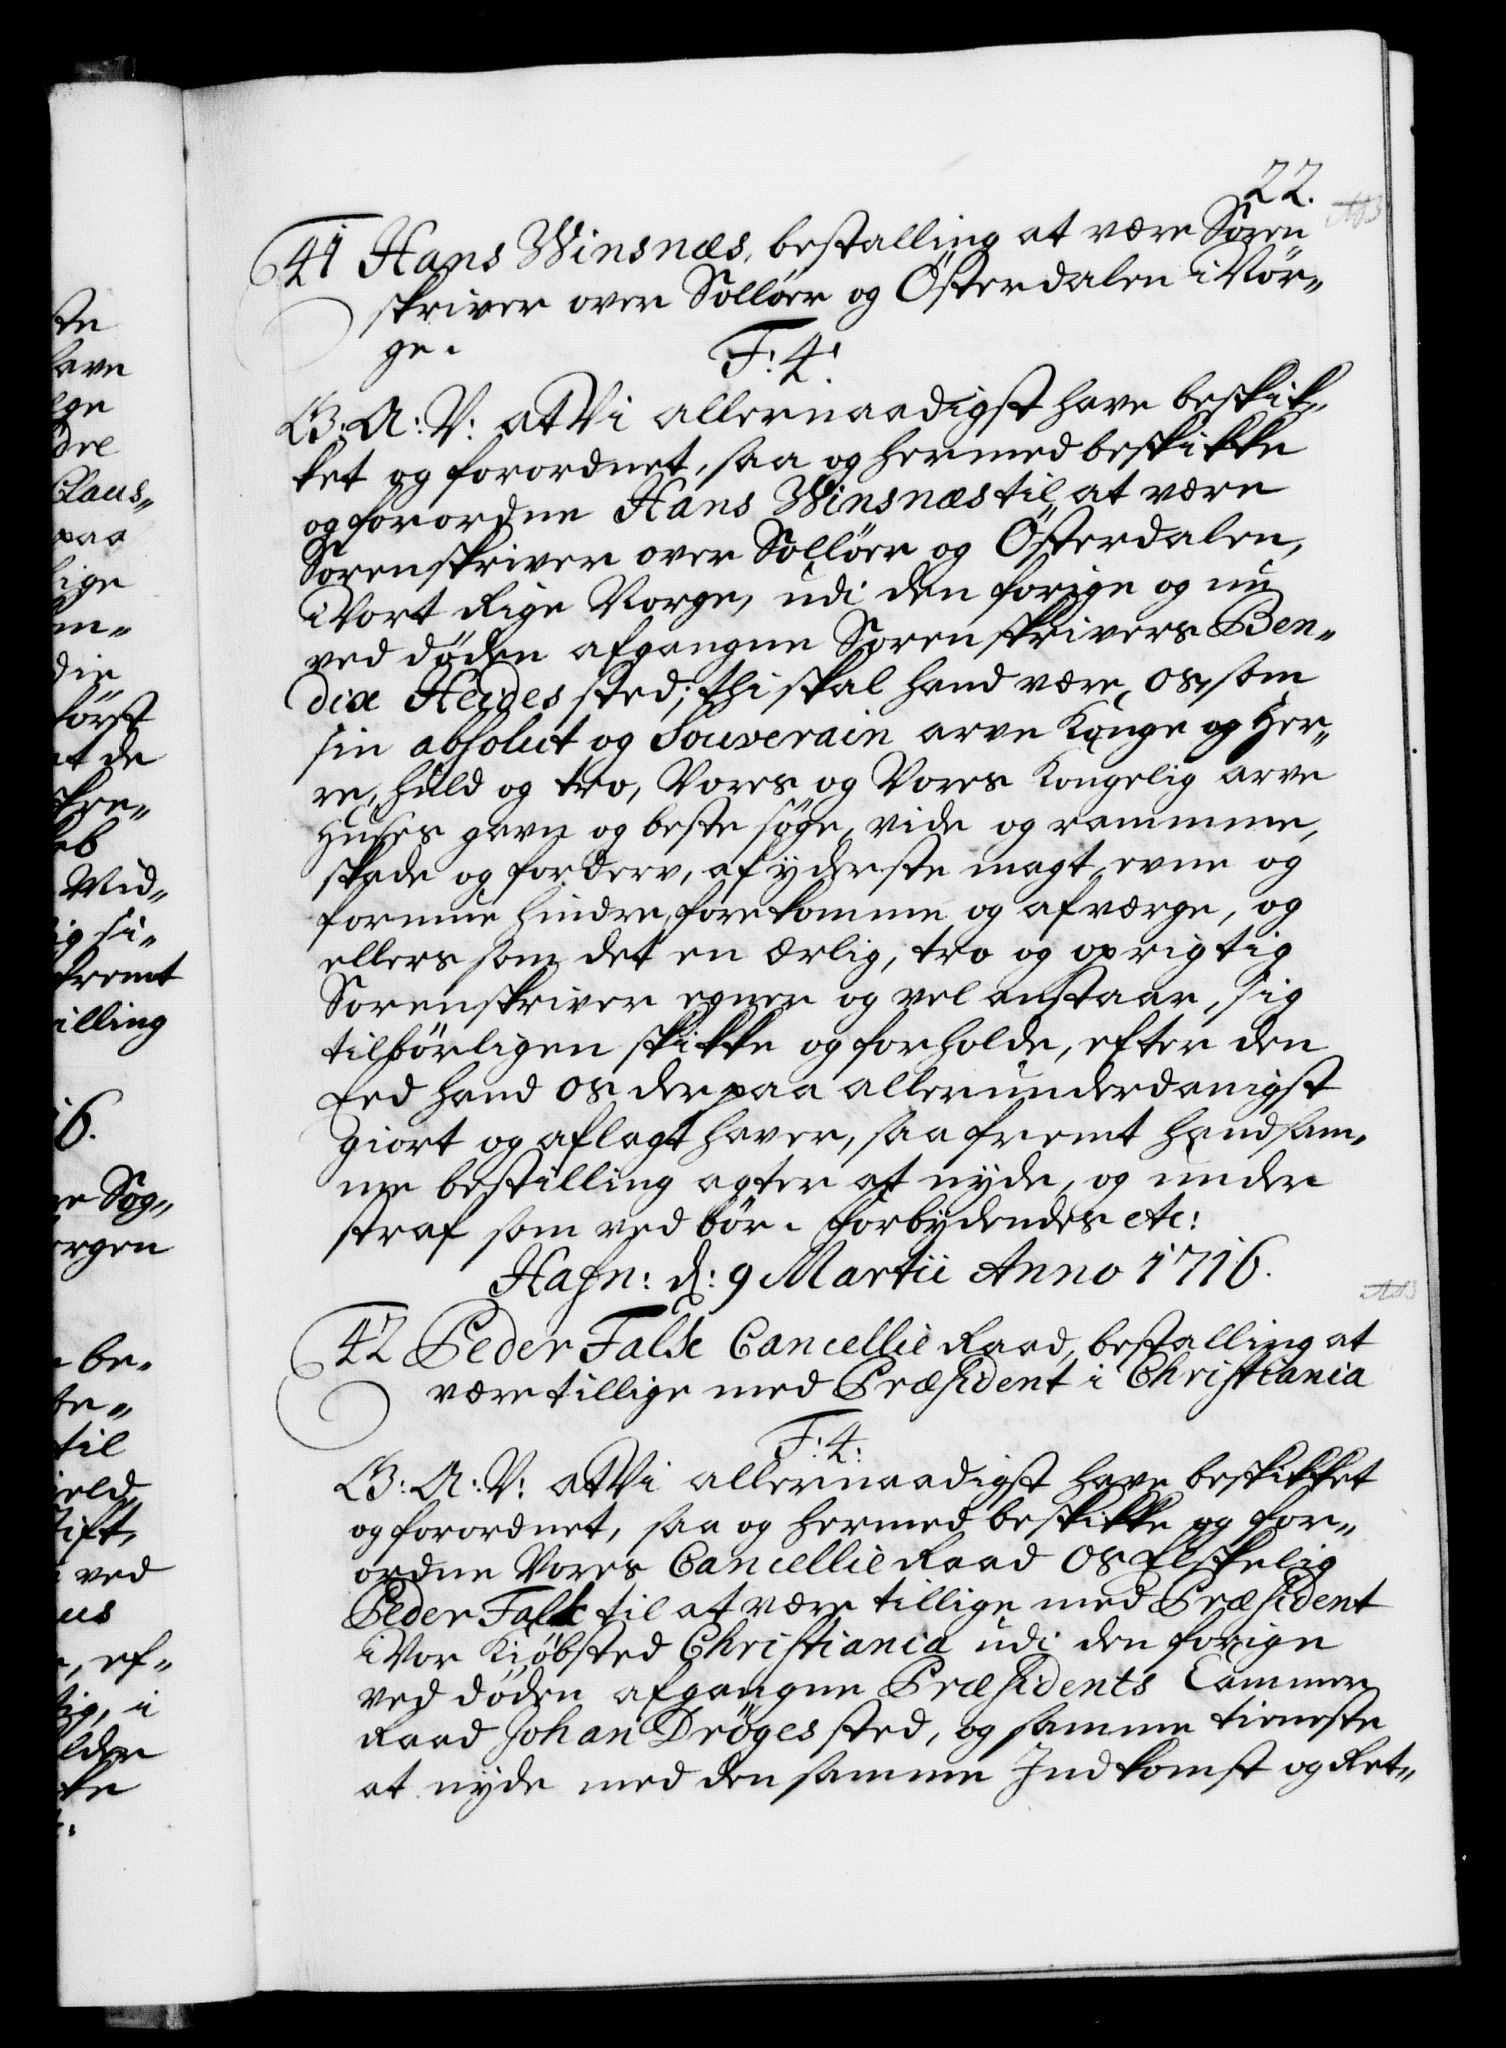 22.
41 Hans Winsnæs, bestalling at være Soren
skriver over Solløer og Österdalen i Nor„
ge.
F: 4:
G: A: V: at Vi allernaadigst have beskik„
ket og forordnet, saa og hermed beskikke
og forordne Hans Winsnæs til at være
Sorenskriver over Solløer og Österdalen,
i Vort Rige Norge, udi den forige og nu
ved døden afgangne Sorenskrivers Ben„
dix Heides sted; thi skal hand være os, som
sin absolut og Souverain arve Konge og Her„
re, huld og tro, Vores og Vores Kongelig arve
Huses gavn og beste søge, vide og rammme,
skade og forderv, af yderste magt, evne og
formue hindre, forekomme og afværge, og
ellers som det en ærlig, tro og oprigtig
Sorenskriver egner og vel anstaar, sig
tilbörligen skikke og forholde, efter den
Eed hand os derpaa allerunderdanigst
giort og aflagt haver, saafremt hand sam„
me bestilling agter at nyde, og under
straf som ved bör. Forbydendes etc:
Hafn: d: 9 Martii Anno 1716.
42 Peder Falk Cancellie Raad, bestalling at
være tillige med Præsident i Christiania
F: 4:
G: A: V: at Vi allernaadigst have beskikket
og forordnet, saa og hermed beskikke og for„
ordne Vores Cancellie Raad os Elskelig
Peder Falk til at være tillige med Præsident
i Vor Kiøbsted Christiania udi den forige
ved døden afgangne Præsidents Cammer
Raad Johan Dröges sted, og samme tieneste
at nyde med den samme Indkomst og Ret„